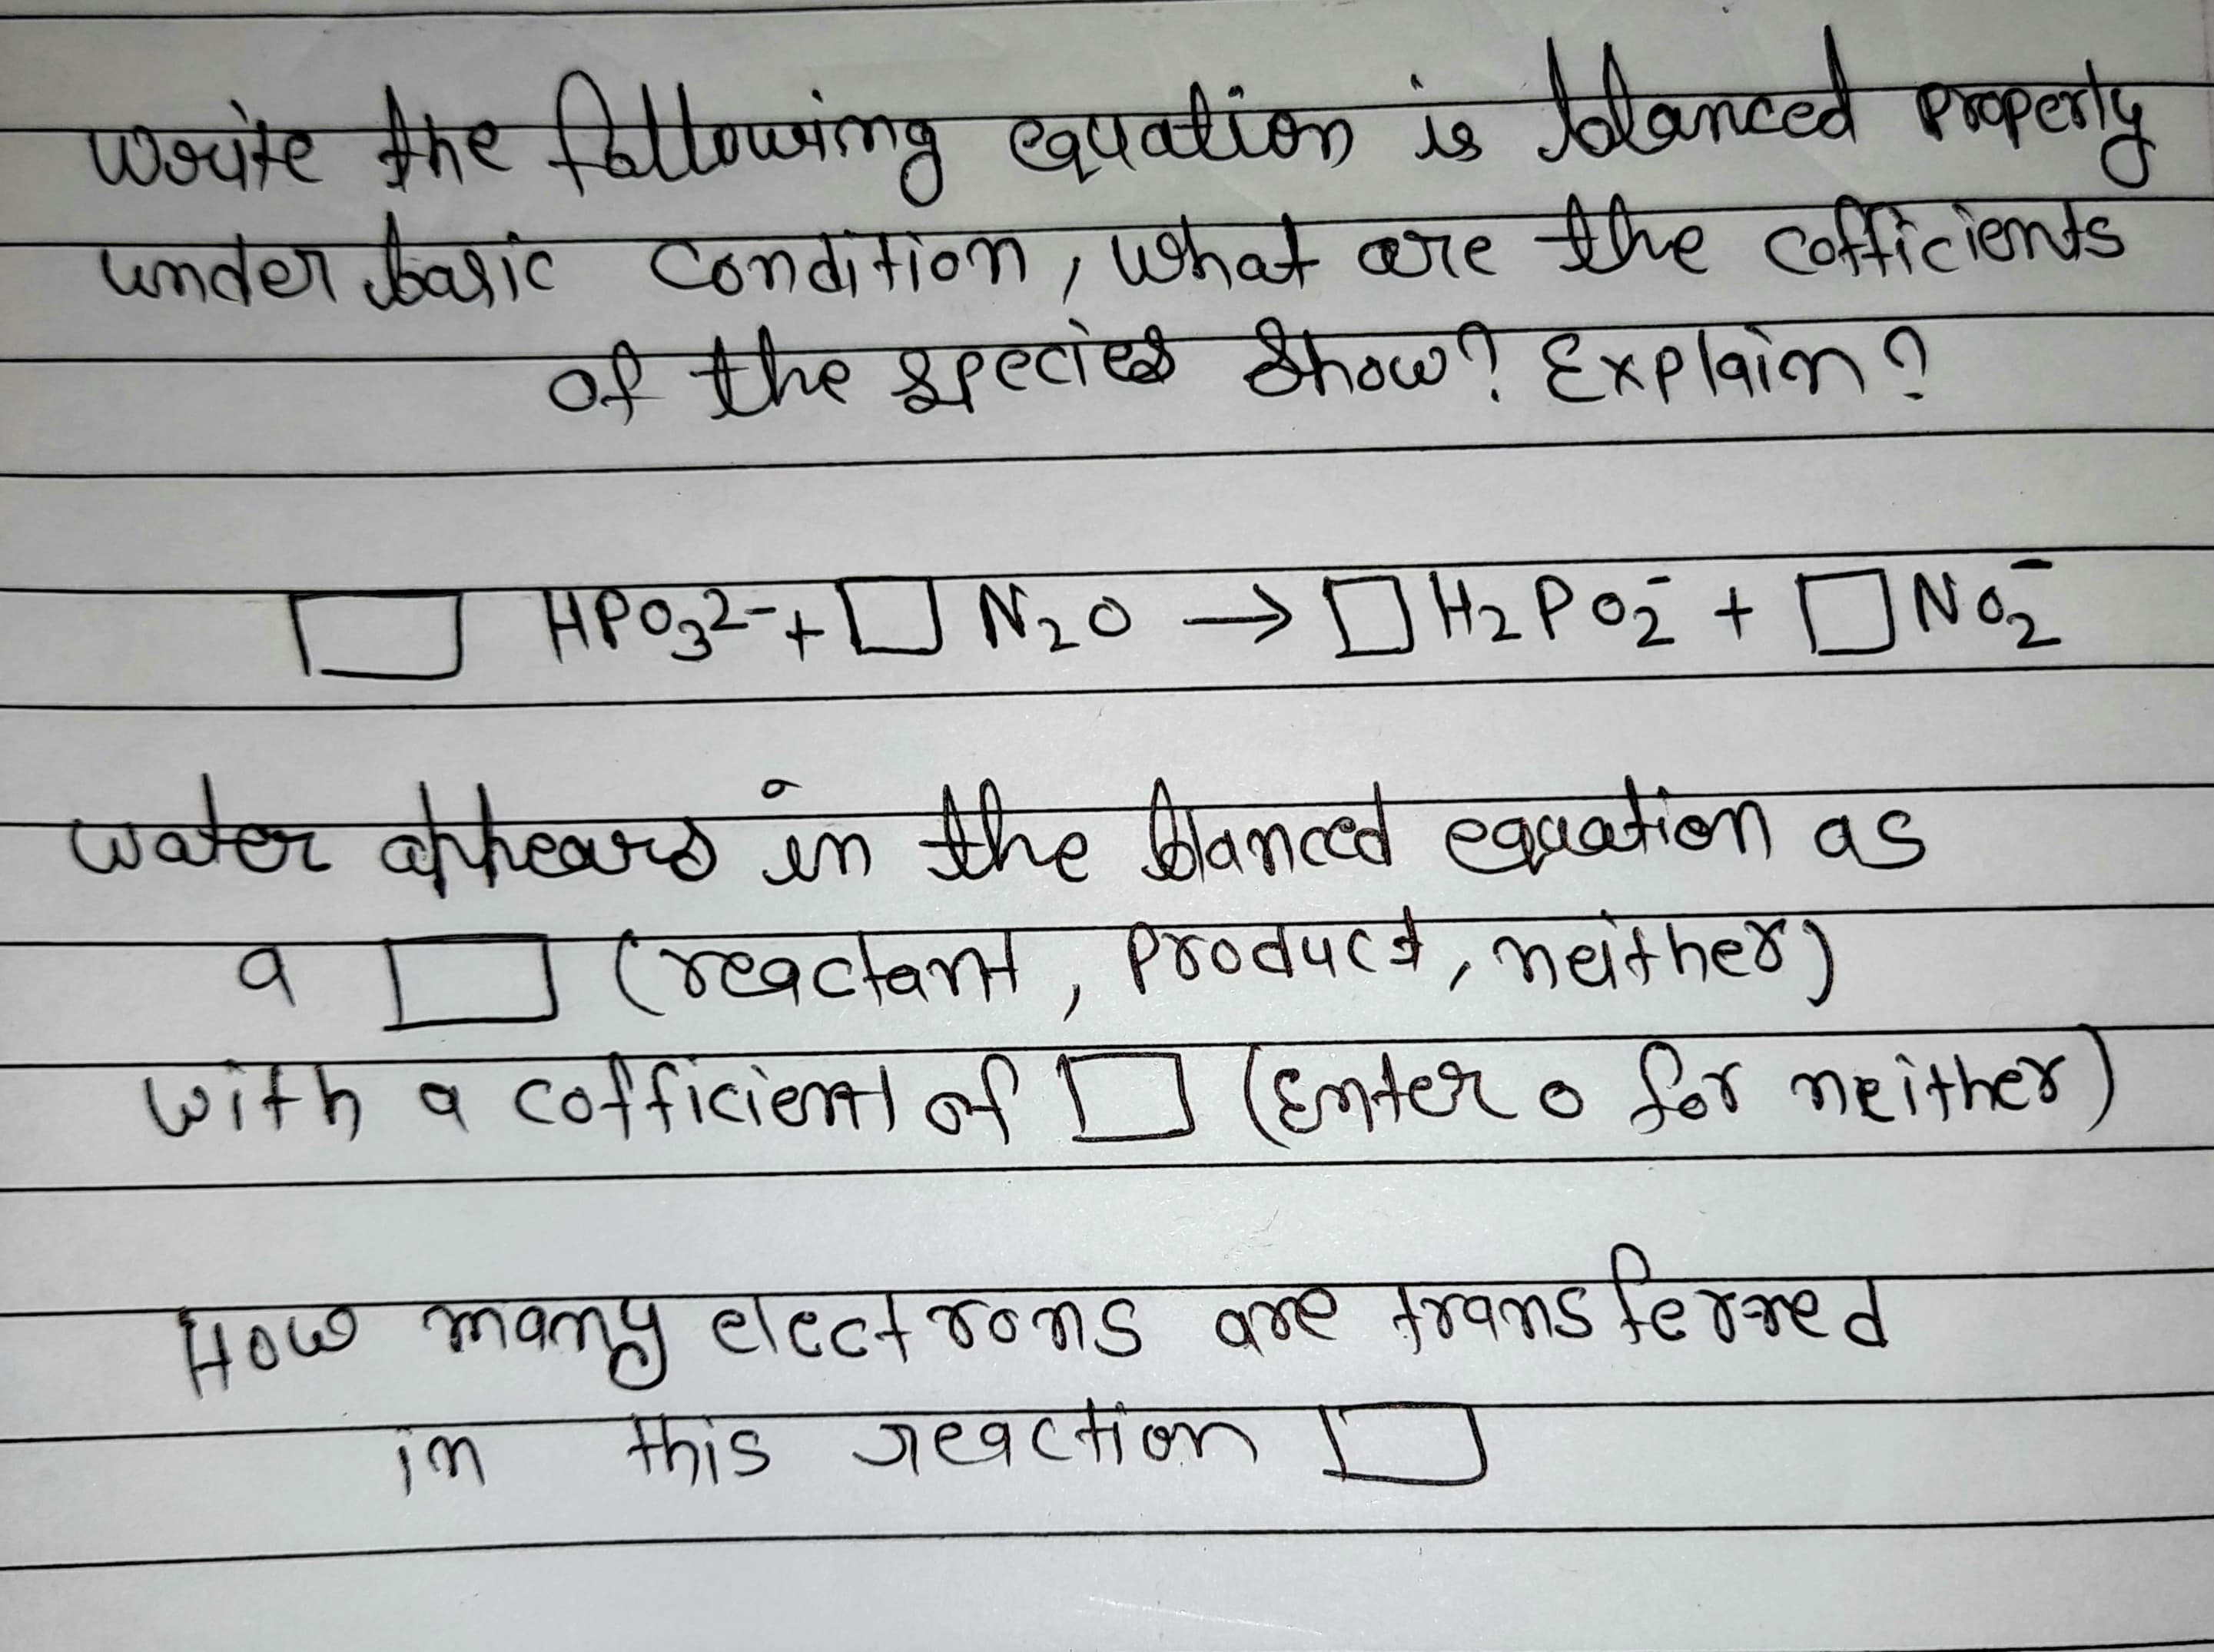 write the following equation is blanced properly
under basic condition, what are the cofficients
of the species show? Explain?
□ HPO₃²⁻ + □ N₂O → □ H₂PO₂⁻ + □ NO₂⁻
water appears in the blanced equation as
a □ (reactant, product, neither)
with a cofficient of □ (Enter 0 for neither)
How many electrons are transferred
in this reaction □